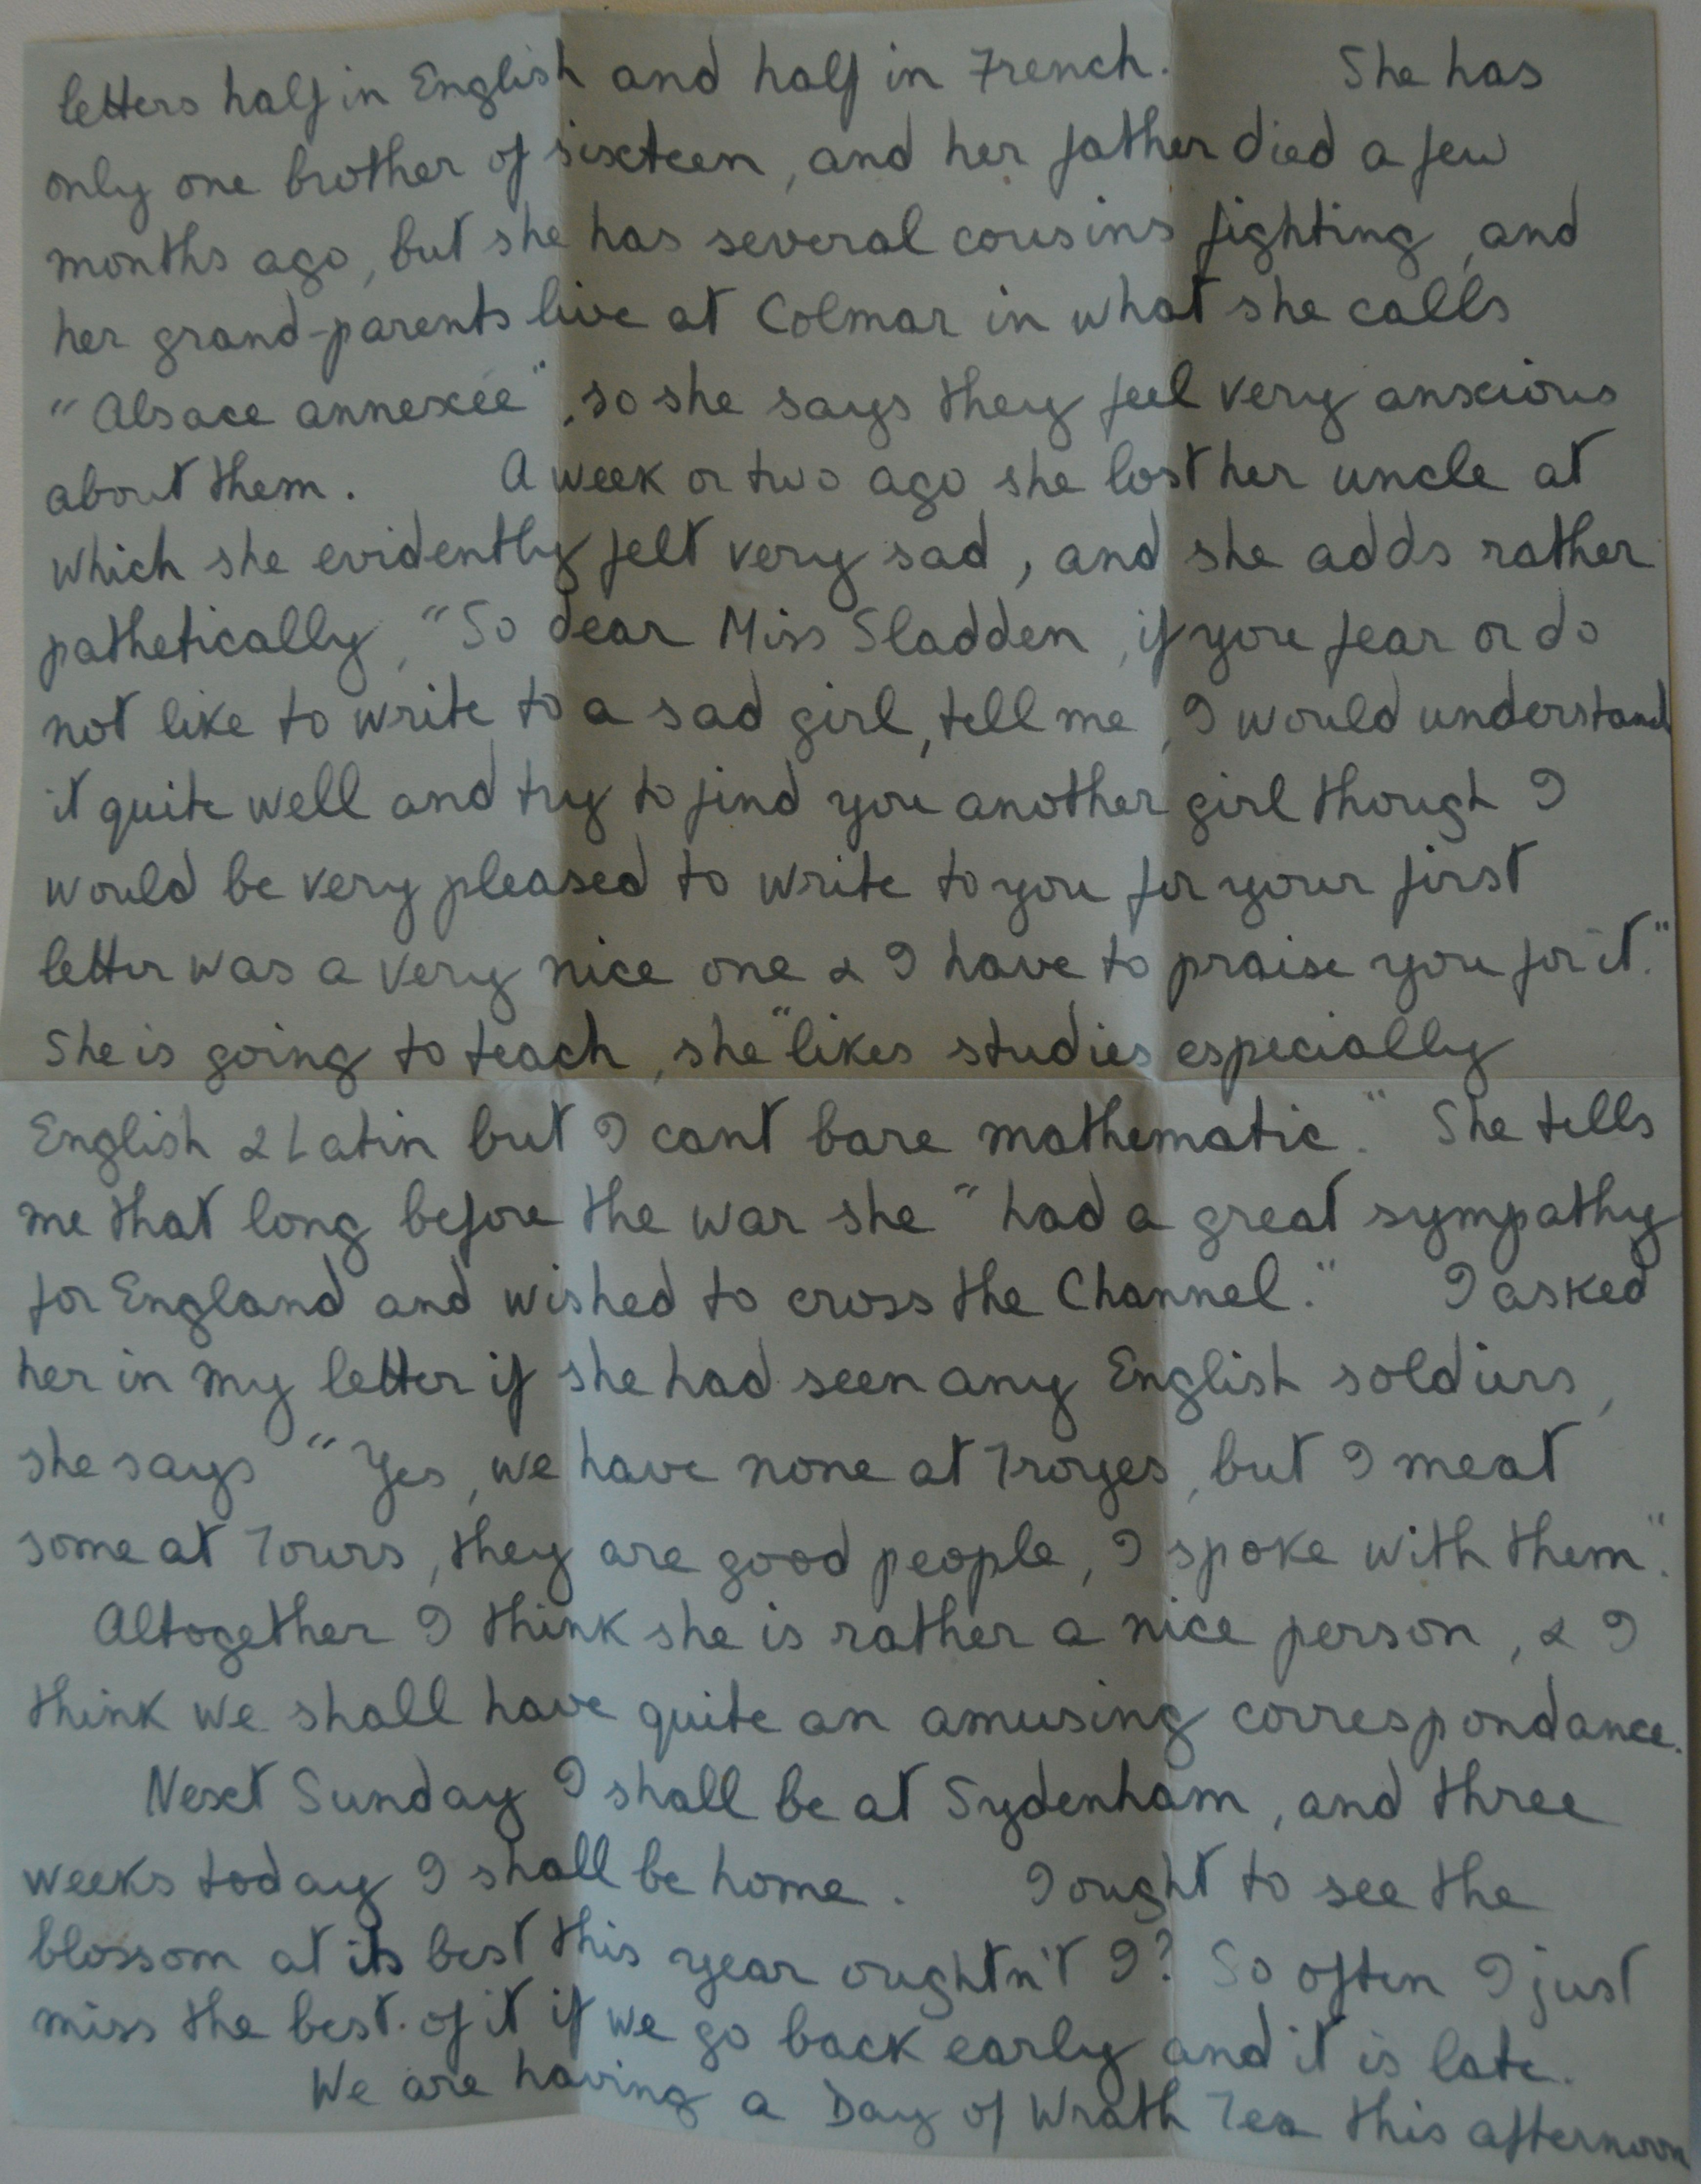 letters half in English and half in French. She has
only one brother of sixteen, and her father died a few
months ago, but she has several cousins fighting, and
her grand-parents live at Colmar in what she calls
"Alsace annexée", so she says they feel very anxious
about them. A week or two ago she lost her uncle at
which she evidently felt very sad, and she adds rather
pathetically, "So dear Miss Sladden, if you fear or do
not like to write to a sad girl, tell me, I would understand
it quite well and try to find you another girl though I
would be very pleased to write to you for your first
letter was a very nice one & I have to praise you for it."
She is going to teach, she "likes studies especially
English & Latin but I cant bare mathematic." She tells
me that long before the war she "had a great sympathy
for England and wished to cross the Channel." I asked
her in my letter if she had seen any English soldiers,
she says "Yes, we have none at Troyes, but I meat
some at Tours, they are good people, I spoke with them".
Altogether I think she is rather a nice person, & I
think we shall have quite an amusing correspondance.
Next Sunday I shall be at Sydenham, and three
weeks today I shall be home. I ought to see the
blossom at its best this year oughtn't I? So often I just
miss the best of it if we go back early and it is late.
We are having a Day of Wrath Tea this afternoon